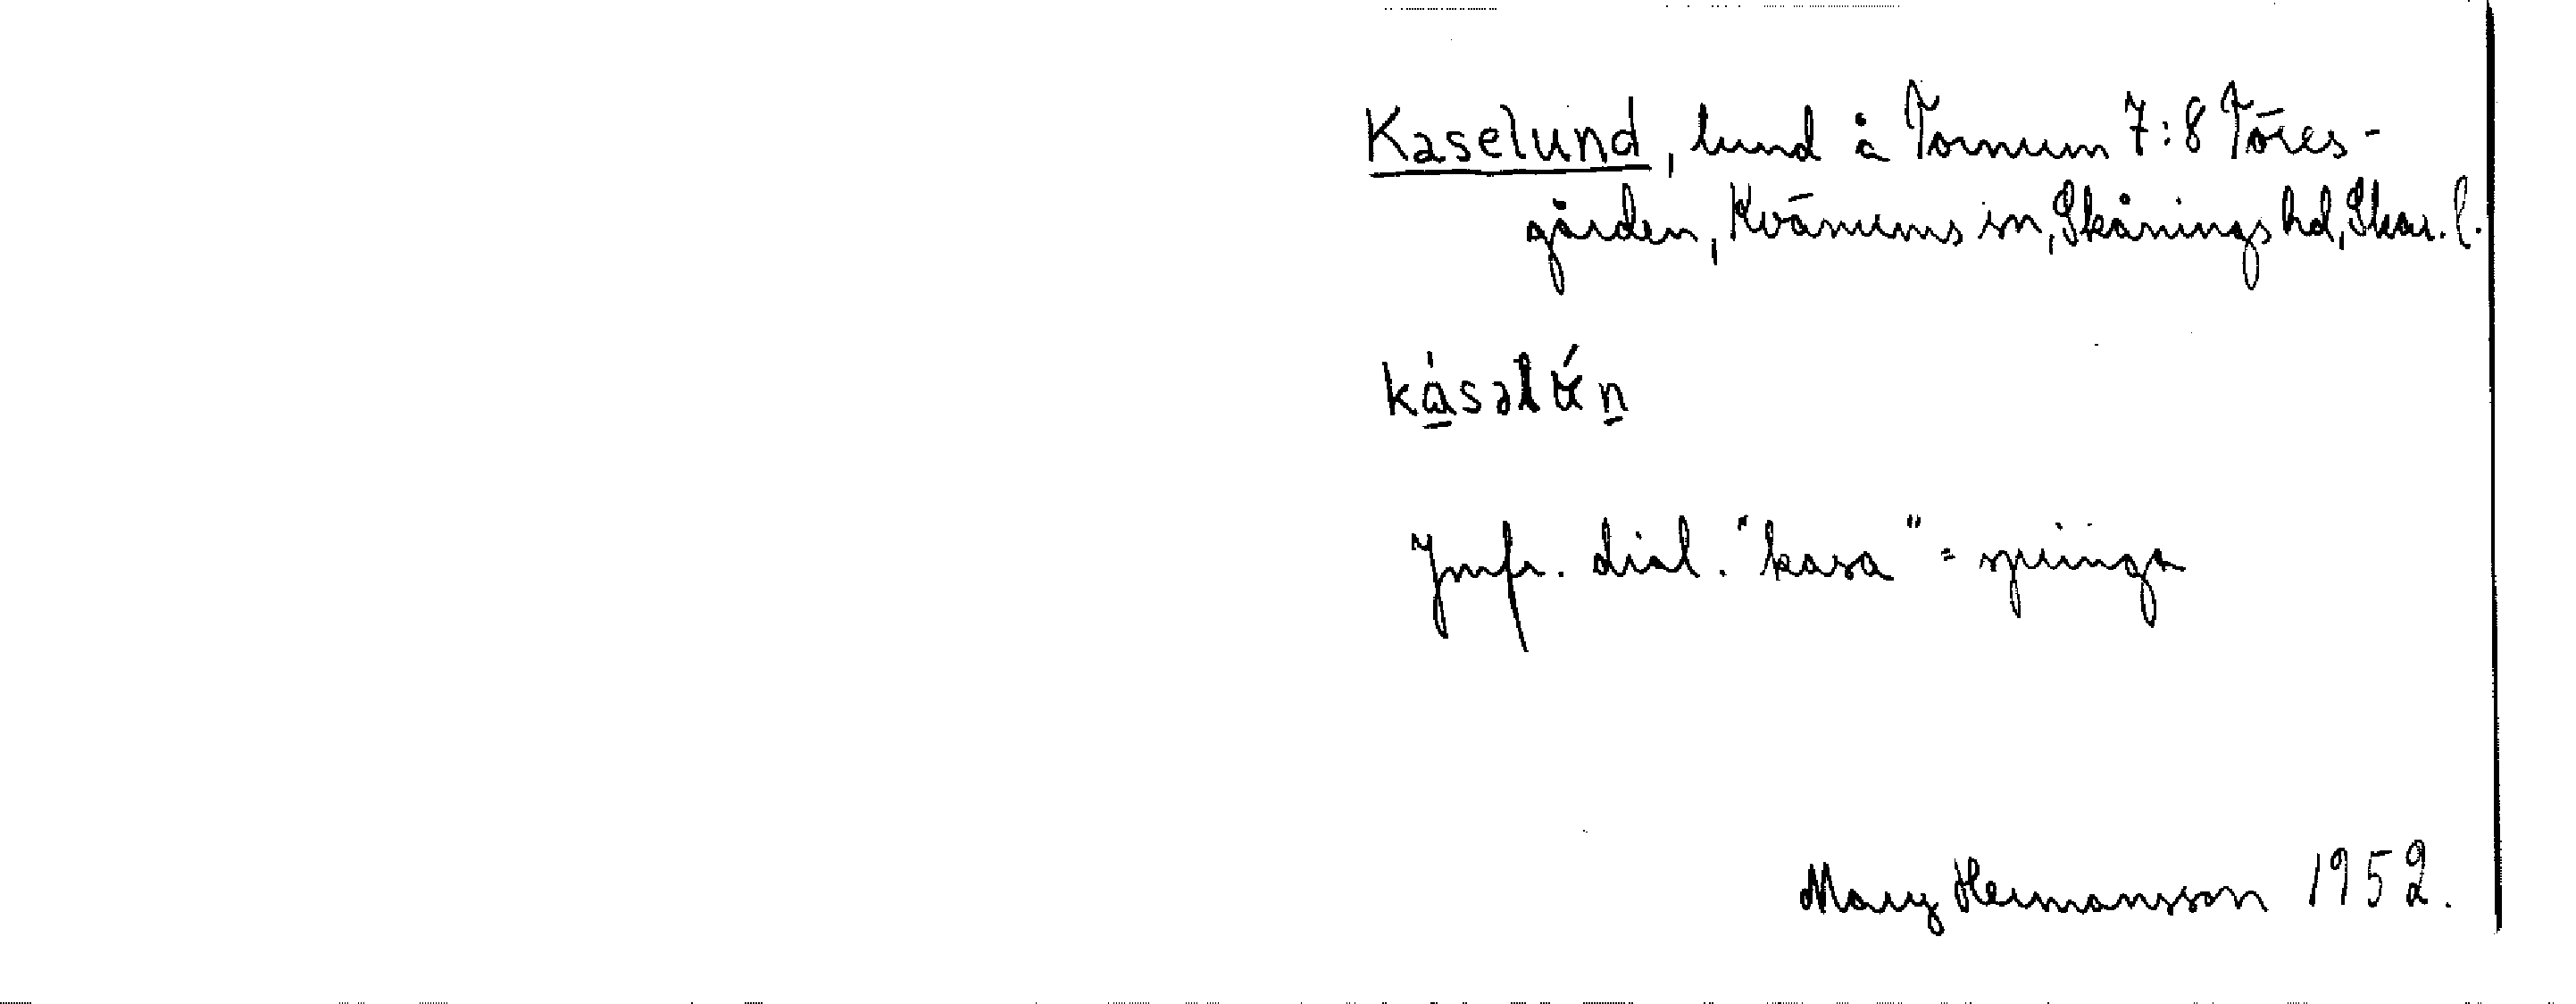 Kaselund, lund å Tornum 7:8 Töres-
gården, Kvänums sn, Skånings hd, Skar. l.
kȧsəlún
Jmfr. dial. "kasa" = springa
Mary Hermansson 1952.